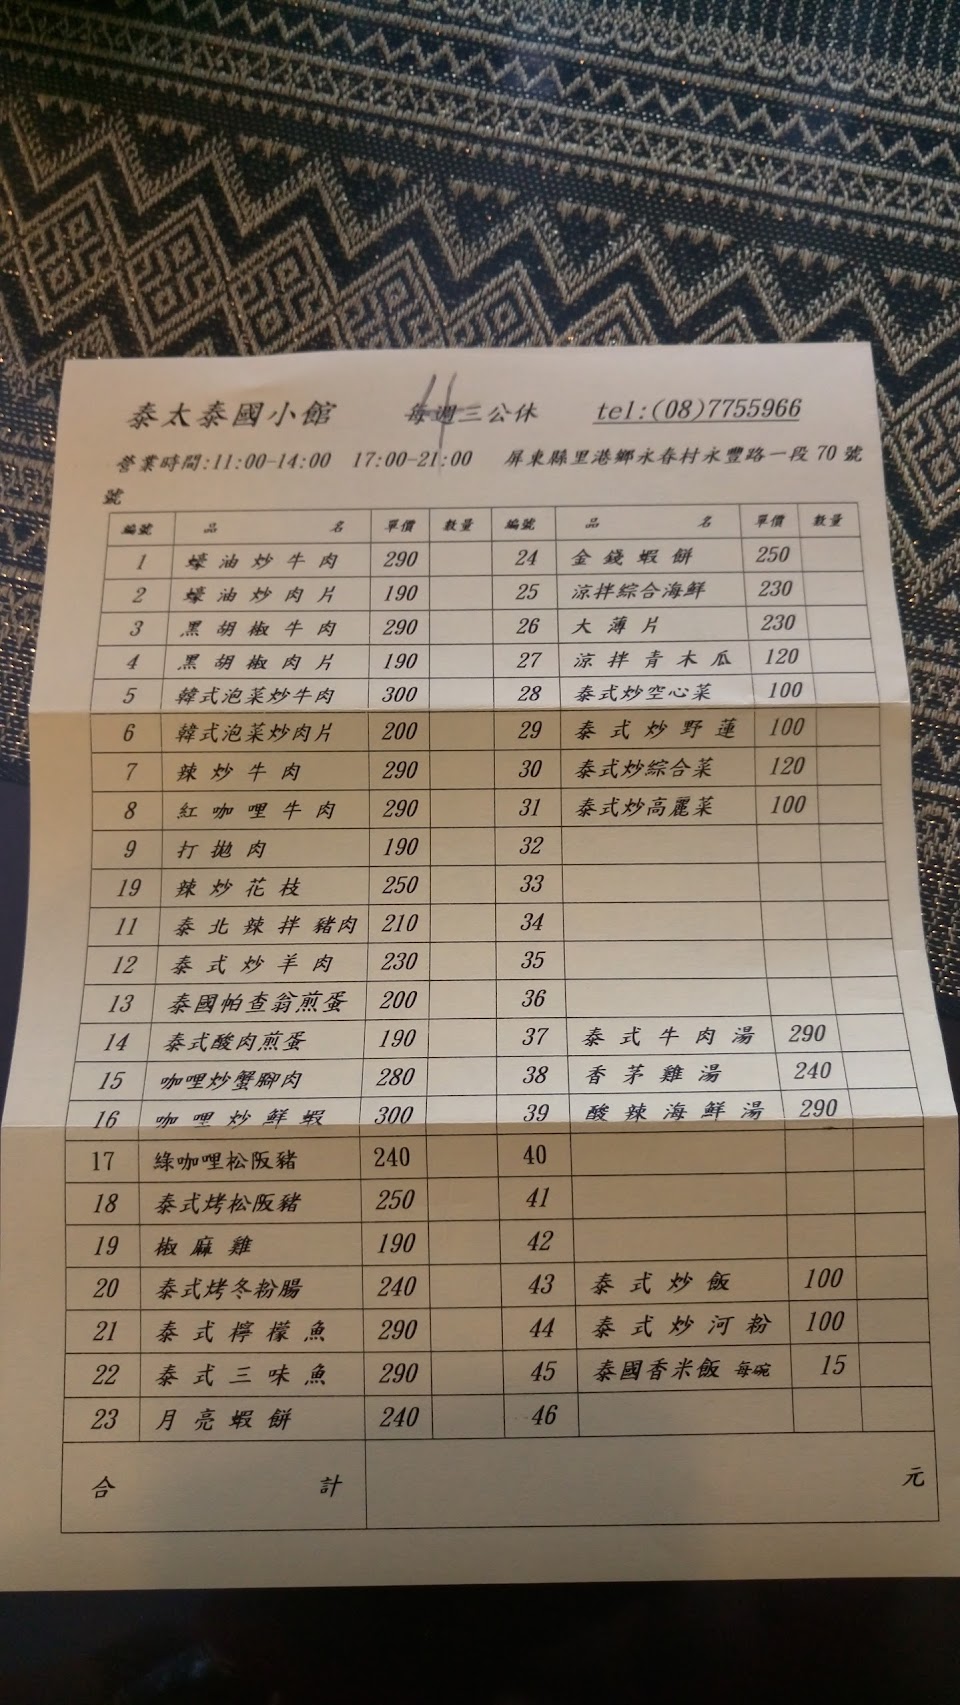 泰太泰國小館 每週三公休 tel:(08)7755966
營業時間:11:00-14:00 17:00-21:00 屏東縣里港鄉永春村永豐路一段 70 號
號
編號 品名 單價 數量 編號 品名 單價 數量
1 蠔油炒牛肉 290 24 金錢蝦餅 250
2 蠔油炒肉片 190 25 涼拌綜合海鮮 230
3 黑胡椒牛肉 290 26 大薄片 230
4 黑胡椒肉片 190 27 涼拌青木瓜 120
5 韓式泡菜炒牛肉 300 28 泰式炒空心菜 100
6 韓式泡菜炒肉片 200 29 泰式炒野蓮 100
7 辣炒牛肉 290 30 泰式炒綜合菜 120
8 紅咖哩牛肉 290 31 泰式炒高麗菜 100
9 打拋肉 190 32
19 辣炒花枝 250 33
11 泰北辣拌豬肉 210 34
12 泰式炒羊肉 230 35
13 泰國帕查翁煎蛋 200 36
14 泰式酸肉煎蛋 190 37 泰式牛肉湯 290
15 咖哩炒蟹腳肉 280 38 香茅雞湯 240
16 咖哩炒鮮蝦 300 39 酸辣海鮮湯 290
17 綠咖哩松阪豬 240 40
18 泰式烤松阪豬 250 41
19 椒麻雞 190 42
20 泰式烤冬粉腸 240 43 泰式炒飯 100
21 泰式檸檬魚 290 44 泰式炒河粉 100
22 泰式三味魚 290 45 泰國香米飯 每碗 15
23 月亮蝦餅 240 46
合計 元